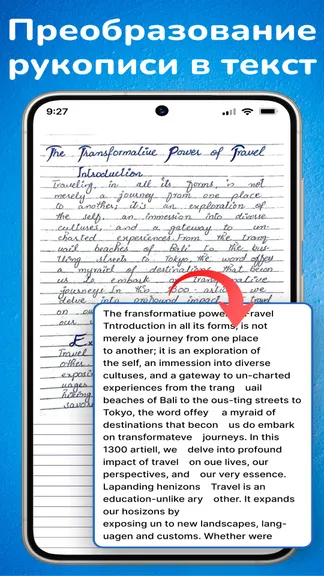 Преобразование
рукописи в текст
9:27
The Transformative Power of Travel
Introduction
Traveling, in all its forms, is not
merely a journey from one place
to another; it's an exploration of
the self, an immession into diverse
cultures, and a gateway to un-
charted experiences. From the tranq
uail beaches of Bali to the bus-
tling streets to Tokyo, the word offers
a myriad of destinations that becon
us to embark on transformative
journeys. In this
delve into profound impact travel
on ou
our v
Ex
Travel
other
exposin
uages
histori
savou
The fransformatiue power Fravel
Tntroduction in all its forms, is not
merely a journey from one place
to another; it is an exploration of
the self, an immession into diverse
cultuses, and a gateway to un-charted
experiences from the trang uail
beaches of Bali to the ous-ting streets to
Tokyo, the word offey a myraid of
destinations that becon us do embark
on transformateve journeys. In this
1300 artiell, we delve into profound
impact of travel on oue lives, our
perspectives, and our very essence.
Lapanding henizons Travel is an
education-unlike ary other. It expands
our hosizons by
exposing un to new landscapes, lang-
uagen and customs. Whether were